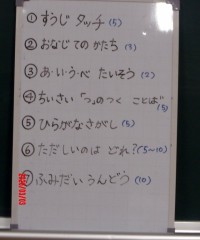 ① すうじ タッチ (5)
② おなじ ての かたち (5)
③ あ・い・う・べ たいそう (2)
④ ちいさい 「っ」の つく ことば
(5)
⑤ ひらがな さがし (5)
⑥ ただしいのは どれ? (5～10)
⑦ ふみだい うんどう (10)